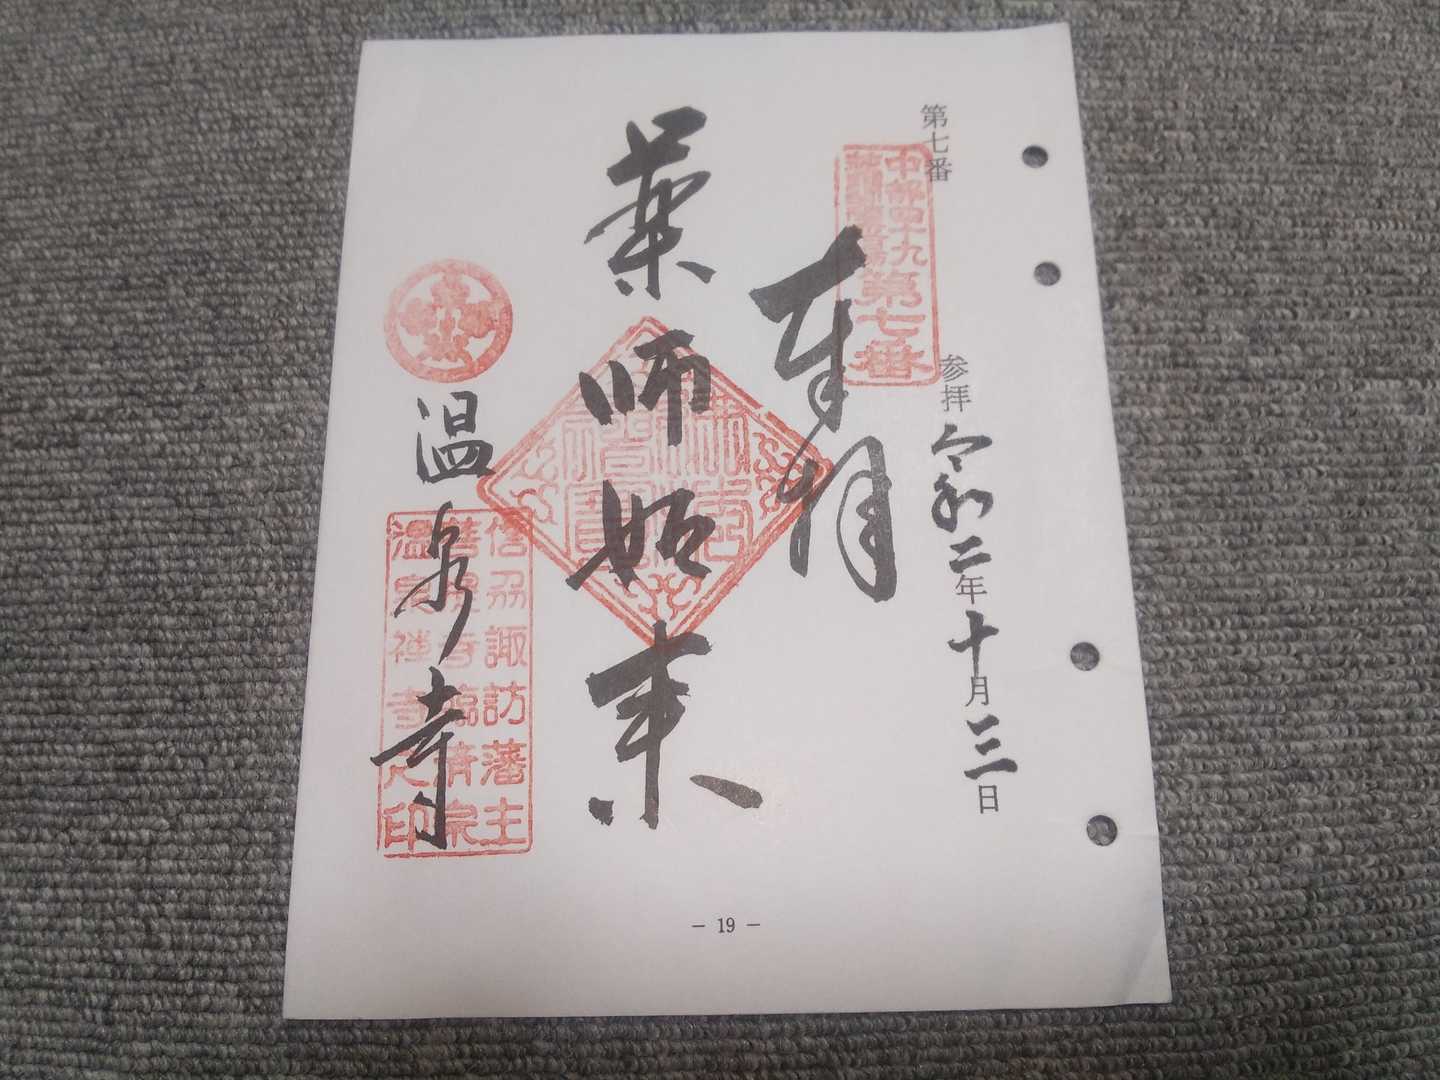 第七番
参拝 令和二年十月三日
中部四十九
薬師霊場第七番
奉拝
薬師如来
温泉寺
信州諏訪藩主
菩提寺臨済宗
温泉禅寺之印
- 19 -